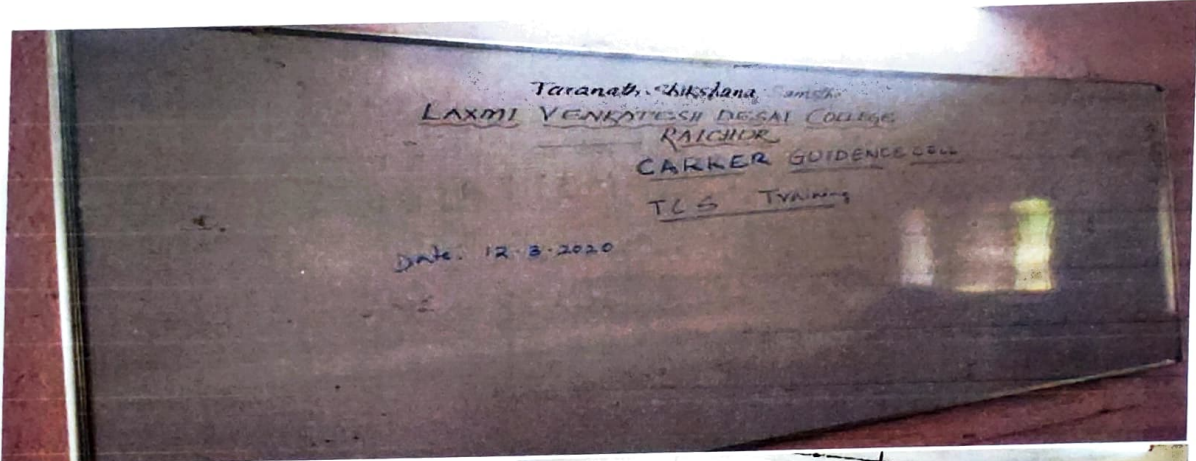 Taranath Shikshana Samstha
LAXMI VENKATESH DESAI COLLEGE
RAICHUR
CARRER GUIDENCE CELL
TCS Training
Date: 12-3-2020